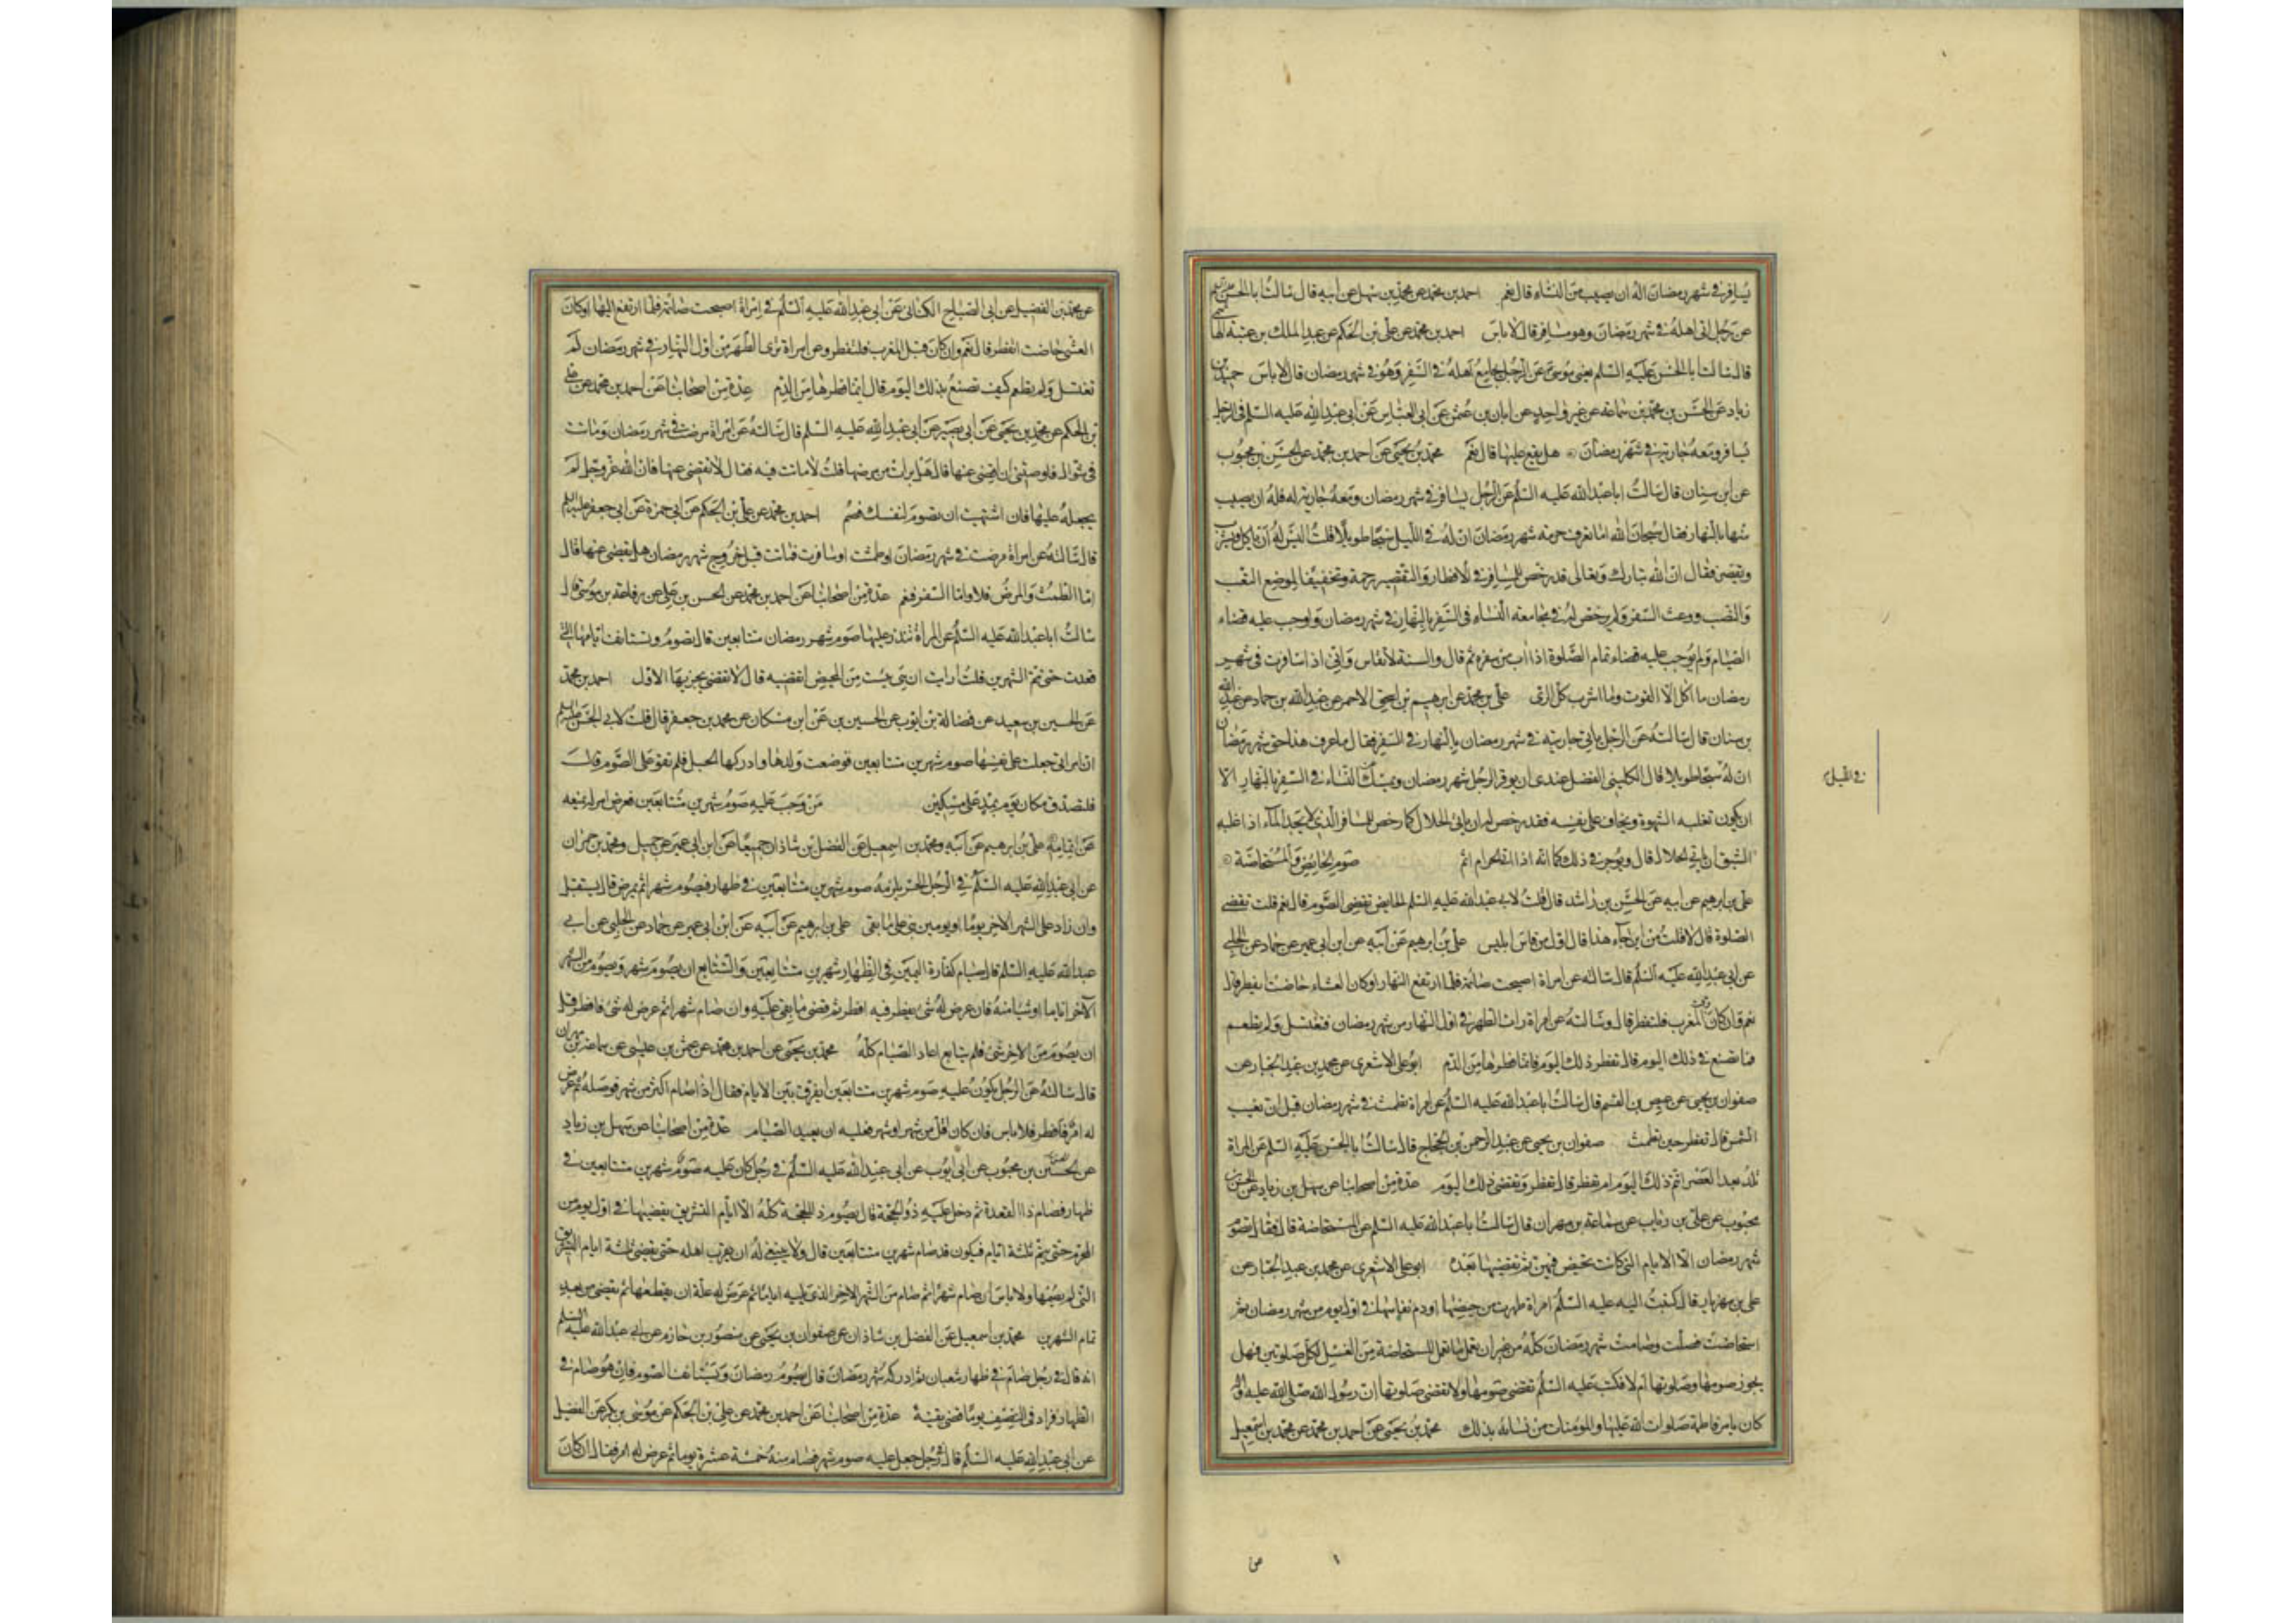 يسافر في شهر رمضان اله ان يصيب من النساء قال نعم احمد بن محمد عن محمد بن سهل عن ابيه قال سالت ابا الحسن عليه السلم
عن رجل اتى اهله في شهر رمضان وهو مسافر قال لا باس احمد بن محمد عن علي بن الحكم عن عبد الملك بن عتبة الهاشمي
قال سالت ابا الحسن عليه السلم يعني موسى عن الرجل يجامع اهله في السفر وهو في شهر رمضان قال لا باس حميد بن
زياد عن الحسن بن محمد بن سماعة عن غير واحد عن ابان بن عثمن عن ابي العباس عن ابي عبد الله عليه السلم في الرجل
يسافر ومعه جارية في شهر رمضان هل يقع عليها قال نعم محمد بن يحيى عن احمد بن محمد عن الحسن بن محبوب
عن ابن سنان قال سالت ابا عبد الله عليه السلم عن الرجل يسافر في شهر رمضان ومعه جارية له فله ان يصيب
منها بالنهار فقال سبحان الله اما تعرف حرمة شهر رمضان ان له في الليل سبحا طويلا قلت اليس له ان ياكل ويشرب
ويقصر فقال ان الله تبارك وتعالى قد رخص للمسافر في الافطار والتقصير رحمة وتخفيفا لموضع التعب
والنصب ووعث السفر ولم يرخص له في مجامعة النساء في السفر بالنهار في شهر رمضان واوجب عليه قضاء
الصيام ولم يوجب عليه قضاء تمام الصلوة اذا اب من سفره ثم قال والسنة لا تقاس واني اذا سافرت في شهر
رمضان ما اكل الا القوت وما اشرب كل الري علي بن محمد عن ابرهيم بن اسحق الاحمر عن عبد الله بن حماد عن عبد الله
بن سنان قال سالته عن الرجل ياتي جاريته في شهر رمضان بالنهار في السفر فقال ما عرف هذا حق شهر رمضان
ان له سبحا طويلا قال الكليني الفضل عندي ان يوقر الرجل شهر رمضان ويمسك عن النساء في السفر بالنهار الا
في الليل
ان يكون تغلبه الشهوة ويخاف على نفسه فقد رخص له ان ياتي الحلال كما رخص للمسافر الذي لا يجد الماء اذا غلبه
الشبق ان ياتي الحلال قال ويوجر في ذلك كما انه اذا اتى الحرام اثم صوم الحايض والمستحاضة
علي بن ابرهيم عن ابيه عن الحسن بن راشد قال قلت لابي عبد الله عليه السلم الحايض تقضي الصوم قال نعم قلت تقضي
الصلوة قال لا قلت من اين جاء هذا قال اول من قاس ابليس علي بن ابرهيم عن ابيه عن ابن ابي عمير عن حماد عن الحلبي
عن ابي عبد الله عليه السلم قال سالته عن امراة اصبحت صائمة فلما ارتفع النهار او كان العشاء حاضت اتفطر قال
نعم وان كان وقت المغرب فلتفطر قال وسالته عن امراة رات الطهر في اول النهار من شهر رمضان فتغتسل ولم تطعم
فما تصنع في ذلك اليوم قال تفطر ذلك اليوم فانما فطرها من الدم ابو علي الاشعري عن محمد بن عبد الجبار عن
صفوان بن يحيى عن عيص بن القسم قال سالت ابا عبد الله عليه السلم عن امراة تطمث في شهر رمضان قبل ان تغيب
الشمس قال تفطر حين تطمث صفوان بن يحيى عن عبد الرحمن بن الحجاج قال سالت ابا الحسن عليه السلم عن المراة
تلد بعد العصر اتتم ذلك اليوم ام تفطر قال تفطر وتقضي ذلك اليوم عدة من اصحابنا عن سهل بن زياد عن الحسن بن
محبوب عن علي بن رئاب عن سماعة بن مهران قال سالت ابا عبد الله عليه السلم عن المستحاضة قال فقال تصوم
شهر رمضان الا الايام التي كانت تحيض فيهن ثم تقضيها بعده ابو علي الاشعري عن محمد بن عبد الجبار عن
علي بن مهزيار قال كتبت اليه عليه السلم امراة طهرت من حيضها او دم نفاسها في اول يوم من شهر رمضان ثم
استحاضت فصلت وصامت شهر رمضان كله من غير ان تعمل ما تعمل المستحاضة من الغسل لكل صلوتين فهل
يجوز صومها وصلوتها ام لا فكتب عليه السلم تقضي صومها ولا تقضي صلوتها ان رسول الله صلى الله عليه واله
كان يامر فاطمة صلوات الله عليها والمؤمنات من نسائه بذلك محمد بن يحيى عن احمد بن محمد عن محمد بن اسمعيل
عن محمد بن الفضيل عن ابي الصباح الكناني عن ابي عبد الله عليه السلم في امراة اصبحت صائمة فلما ارتفع النهار او كان
العشي حاضت اتفطر قال نعم وان كان قبل المغرب فلتفطر وعن امراة ترى الطهر من اول النهار في شهر رمضان لم
تغتسل ولم تطعم كيف تصنع بذلك اليوم قال انما فطرها من الدم عدة من اصحابنا عن احمد بن محمد عن علي
بن الحكم عن محمد بن يحيى عن ابي بصير عن ابي عبد الله عليه السلم قال سالته عن امراة مرضت في شهر رمضان وماتت
في شوال فاوصتني ان اقضي عنها قال هل برات من مرضها قلت لا ماتت فيه فقال لا تقضي عنها فان الله عز وجل لم
يجعله عليها فان اشتهيت ان تصوم لنفسك فصم احمد بن محمد عن علي بن الحكم عن ابي حمزة عن ابي جعفر عليه السلم
قال سالته عن امراة مرضت في شهر رمضان او طمثت او سافرت فماتت قبل خروج شهر رمضان هل يقضى عنها قال
اما الطمث والمرض فلا واما السفر فنعم عدة من اصحابنا عن احمد بن محمد عن الحسن بن علي عن رفاعة بن موسى قال
سالت ابا عبد الله عليه السلم عن المراة تنذر عليها صوم شهر رمضان متتابعين قال تصوم وتستانف ايامها التي
قعدت حتى تتم الشهرين قلت ارايت ان هي يئست من المحيض اتقضيه قال لا تقضي يجزيها الاول احمد بن محمد
عن الحسين بن سعيد عن فضالة بن ايوب عن الحسين بن عن ابن مسكان عن محمد بن جعفر قال قلت لابي الحسن عليه السلم
ان امراتي جعلت على نفسها صوم شهرين متتابعين فوضعت ولدها وادركها الحبل فلم تقو على الصوم قال
فلتصدق مكان يوم بمد على مسكين من وجب عليه صوم شهرين متتابعين فعرض امر له يمنعه
عن اتمامه علي بن ابرهيم عن ابيه ومحمد بن اسمعيل عن الفضل بن شاذان جميعا عن ابن ابي عمير عن جميل ومحمد بن حمران
عن ابي عبد الله عليه السلم في الرجل الحر يلزمه صوم شهرين متتابعين في ظهار فيصوم شهرا ثم يمرض قال يستقبل
وان زاد على الشهر الاخر يوما او يومين بنى على ما بقي علي بن ابرهيم عن ابيه عن ابن ابي عمير عن حماد عن الحلبي عن ابي
عبد الله عليه السلم قال صيام كفارة اليمين في الظهار شهرين متتابعين والتتابع ان يصوم شهر ويصوم من الشهر
الاخر اياما او شيئا منه فان عرض له شئ يفطر فيه افطر ثم قضى ما بقي عليه وان صام شهرا ثم عرض له شئ فافطر قبل
ان يصوم من الاخر شئ فلم يتابع اعاد الصيام كله محمد بن يحيى عن احمد بن محمد عن عثمن بن عيسى عن سماعة بن مهران
قال سالته عن الرجل يكون عليه صوم شهرين متتابعين ايفرق بين الايام فقال اذا صام اكثر من شهر فوصله ثم عرض
له امر فافطر فلا باس فان كان اقل من شهر او شهر فعليه ان يعيد الصيام عدة من اصحابنا عن سهل بن زياد
عن الحسين بن محبوب عن ابي ايوب عن ابي عبد الله عليه السلم في رجل كان عليه صوم شهرين متتابعين في
ظهار فصام ذا القعدة ثم دخل عليه ذو الحجة قال يصوم ذا الحجة كله الا ايام التشريق يقضيها في اول يوم من
المحرم حتى يتم ثلثة ايام فيكون قد صام شهرين متتابعين قال ولا ينبغي له ان يقرب اهله حتى يقضي ثلثة ايام التشريق
التي لم يصمها ولا باس ان صام شهرا ثم صام من الشهر الاخر الذي يليه اياما ثم عرض له علة ان يقطعها ثم يقضي من بعد
تمام الشهرين محمد بن اسمعيل عن الفضل بن شاذان عن صفوان بن يحيى عن منصور بن حازم عن ابي عبد الله عليه السلم
انه قال في رجل صام في ظهار شعبان ثم ادركه شهر رمضان قال يصوم رمضان ويستانف الصوم فان هو صام في
الظهار فزاد في النصف يوما قضى بقيته عدة من اصحابنا عن احمد بن محمد عن علي بن الحكم عن موسى بن بكر عن الفضيل
عن ابي عبد الله عليه السلم قال في رجل جعل عليه صوم شهر فصام منه خمسة عشرة يوما ثم عرض له امر فقال ان كان